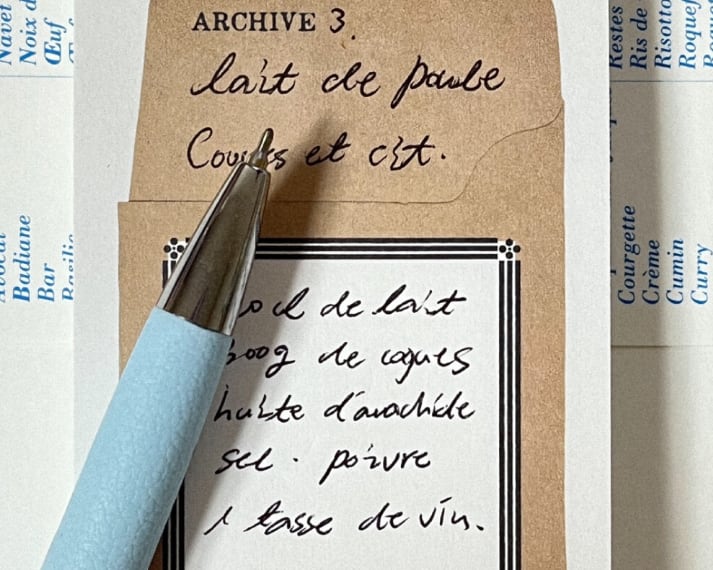 ARCHIVE 3.
lait de poule
et cit.
cl de lait
300g de coques
huile d'arachide
sel . poivre
1 tasse de vin.
Navet
Noix d
Œuf
Badiane
Bar
Restes
Ris de
Risotto
Roquef
Courgette
Crème
Cumin
Curry